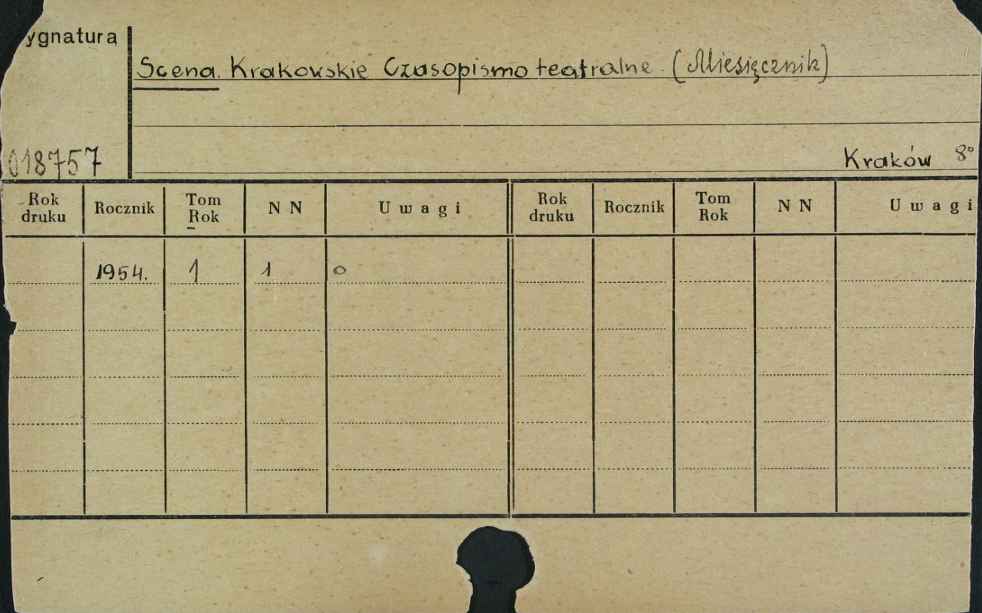 ygnatura
Scena. Krakowskie Czasopismo teatralne. (Miesięcznik)
018757
Kraków 8°
Rok druku Rocznik Tom Rok N N Uwagi Rok druku Rocznik Tom Rok N N Uwagi
1954. 1 1 o